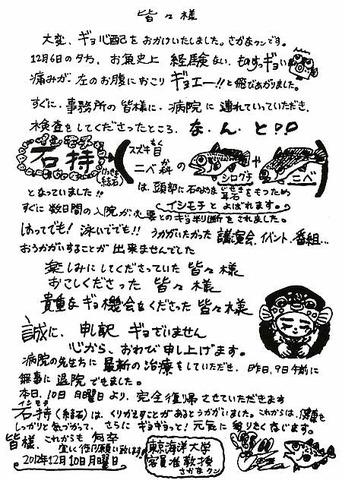 皆々様
大変、ギョ心配をおかけいたしました。さかなクンです。
12月6日の夕方、お魚史上 経験ない、ものすギョい
痛みが 左のお腹におこり ギョエー!!と飛びあがりました。
すぐに、事務所の皆様に、病院に 連れていっていただき、
検査をしてくださったところ、な、ん、と
石持 (結石) スズキ目 ニベ科の シログチ や ニベ
は、頭部に石のような耳石をもつため
となっていました!! イシモチとよばれます。
すぐに 数日間の入院が必要とのギョ判断をされました。
はってでも! 泳いででも!! うかがいたかった 講演会、イベント、番組…
おうかがいすることが 出来ませんでした
楽しみにしてくださっていた 皆々様
お越しくださった 皆々様
貴重なギョ機会をくださった 皆々様
誠に、申し訳 ギョざいません
心から、おわび申し上げます。
病院の先生方に 最新の治療をしていただき、昨日、9日午前に
無事に 退院 できました。
本日、10日 月曜日より、完全復帰させていただきます
石持 イシモチ (結石)は、くりかえすことがあるとうかがいました。これからは、
しっかりと気づかって、さらに ギョギョっと! 元気に
皆様、これからも 何卒
宜しく御願い致します
2012年12月10日月曜日
東京海洋大学
客員准教授
さかなクン